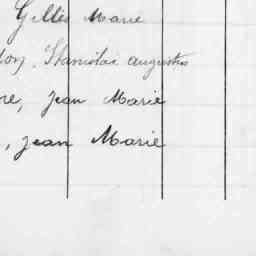 Gilles Marie
Stanislas augustus
re, Jean Marie
, jean Marie